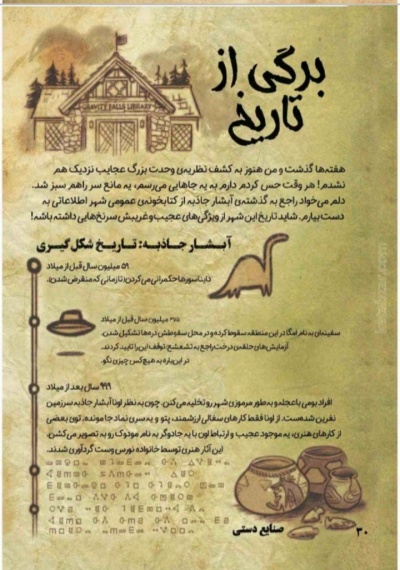 برگی از
تاریخ
GRAVITY FALLS LIBRARY
هفته‌ها گذشت و من هنوز به کشف نظریه‌ی وحدت بزرگ عجایب نزدیک هم
نشدم! هر وقت حس کردم دارم به یه جاهایی می‌رسم، یه مانع سر راهم سبز شد.
دلم می‌خواد راجع به گذشته‌ی آبشار جاذبه از کتابخونه‌ی عمومی شهر اطلاعاتی به
دست بیارم. شاید تاریخ این شهر از ویژگی‌های عجیب و غریبش سرنخ‌هایی داشته باشه!
آبشار جاذبه: تاریخ شکل‌گیری
میلیون سال قبل از میلاد
دایناسورها حکمرانی می‌کردن؛ تا زمانی که منقرض شدن؛
میلیون سال قبل از میلاد
سفینه‌ای به نام در این منطقه سقوط کرده و در محل سقوطش دره‌ها تشکیل شدن.
آزمایش‌های حلقه‌ی درخت راجع به تشعشع توقف این را تایید کردند.
در این‌باره به هیچ‌کس چیزی نگو.
۹۹۹ سال بعد از میلاد
افراد بومی با عجله و به‌طور مرموزی شهر رو تخلیه می‌کنن. چون به نظر اونا آبشار جاذبه سرزمین
نفرین شده‌ست. از اونا فقط کارهای سفالی ارزشمند، پتو و یه سری نماد جا مونده. توی بعضی
از کارهای هنری، یه موجود عجیب و ارتباط اون با یه جادوگر به نام مودوک رو به تصویر می‌کشن.
این آثار هنری توسط خانواده نورس وست گردآوری شدند.
صنایع دستی
۳۰